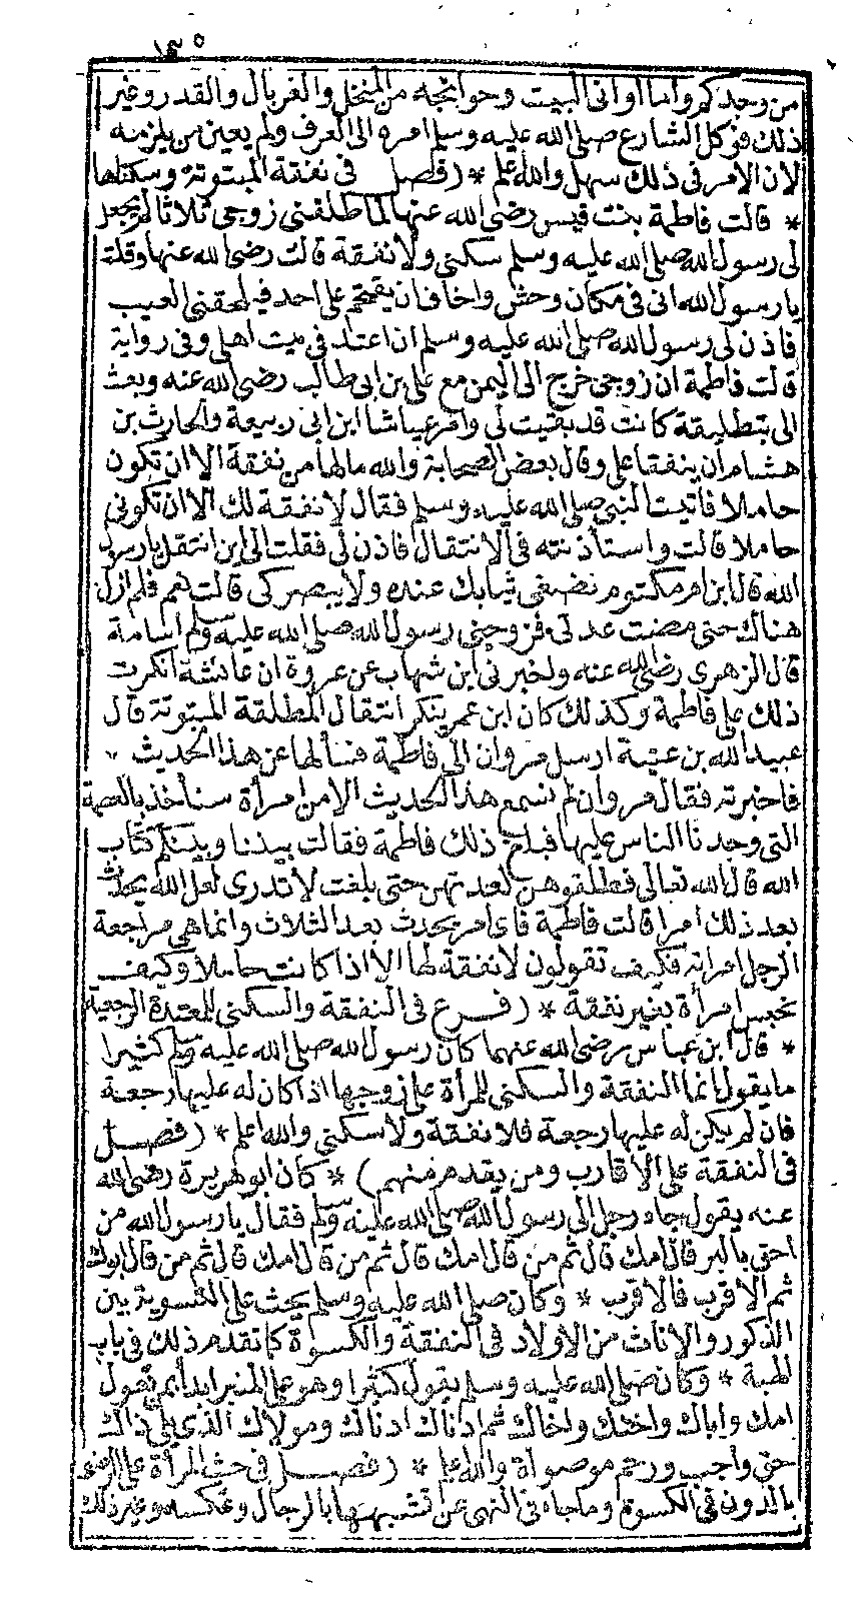 ١٣٥
من وجدكم وأما أوانى البيت وحوائجه من المنخل والغربال والقدر وغير
ذلك فوكل الشارع صلى الله عليه وسلم امره الى العرف ولم يعين من يلزمه
لان الامر فى ذلك سهل والله اعلم * (فصل فى نفقة المبتوتة وسكناها
* قالت فاطمة بنت قيس رضى الله عنها لما طلقنى زوجى ثلاثا لم يجعل
لى رسول الله صلى الله عليه وسلم سكنى ولا نفقة قالت رضى الله عنها وقلت
يا رسول الله انى فى مكان وحش واخاف ان يقتحم على احد فيلحقنى العيب
فاذن لى رسول الله صلى الله عليه وسلم ان اعتد فى بيت اهلى وفى رواية
قالت فاطمة ان زوجى خرج الى اليمن مع على بن ابى طالب رضى الله عنه وبعث
الى بتطليقة كانت قد بقيت لى وامر عياشا ابن ابى ربيعة والحارث بن
هشام ان ينفقا على وقال بعض الصحابة والله مالها من نفقة الا ان تكون
حاملا فاتيت النبى صلى الله عليه وسلم فقال لا نفقة لك الا ان تكونى
حاملا قالت واستأذنته فى الانتقال فاذن لى فقلت الى اين انتقل يا رسول
الله قال ابن ام مكتوم تضعى ثيابك عنده ولا يبصركى قالت هم فلم ازل
هناك حتى مضت عدتى فزوجنى رسول الله صلى الله عليه وسلم اسامة
قال الزهرى رضى الله عنه واخبرنى ابن شهاب عن عروة ان عائشة انكرت
ذلك على فاطمة وكذلك كان ابن عمر ينكر انتقال المطلقة المبتوتة قال
عبيد الله بن عتبة ارسل مروان الى فاطمة فسألها عن هذا الحديث
فاخبرته فقال مروان لم نسمع هذا الحديث الا من امرأة سنأخذ بالعصمة
التى وجدنا الناس عليها فبلغ ذلك فاطمة فقالت بيننا وبينكم كتاب
الله قال الله تعالى فطلقوهن لعدتهن حتى بلغت لا تدرى لعل الله يحدث
بعد ذلك امرا قالت فاطمة فاى امر يحدث بعد الثلاث وانما هى مراجعة
الرجل امراته فكيف تقولون لا نفقة لها الا اذا كانت حاملا وكيف
تحبس امرأة بغير نفقة * (فرع فى النفقة والسكنى للمعتدة الرجعية
* قال ابن عباس رضى الله عنهما كان رسول الله صلى الله عليه وسلم كثيرا
ما يقول انما النفقة والسكنى للمرأة على زوجها اذا كان له عليها رجعة
فان لم يكن له عليها رجعة فلا نفقة ولا سكنى والله اعلم * (فصل
فى النفقة على الاقارب ومن يقدم منهم) * كان ابو هريرة رضى الله
عنه يقول جاء رجل الى رسول الله صلى الله عليه وسلم فقال يا رسول الله من
احق بالبر قال امك قال ثم من قال امك قال ثم من قال امك قال ثم من قال ابوك
ثم الاقرب فالاقرب * وكان صلى الله عليه وسلم يحث على التسوية بين
الذكور والاناث من الاولاد فى النفقة والكسوة كما تقدم ذلك فى باب
الهبة * وكان صلى الله عليه وسلم يقول كثيرا وهو على المنبر ابدأ بمن تعول
امك واباك واختك واخاك ثم ادناك ادناك ومولاك الذى يلى ذاك
حق واجب ورحم موصولة والله اعلم * (فصل فى حث المرأة على الرضى
بالدون فى الكسوة وما جاء فى النهى عن تشبهها بالرجال وعكسه وغير ذلك